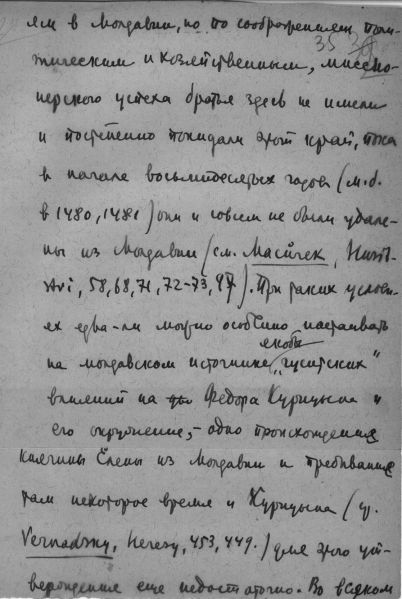 ям в Молдавии, но по соображениям поли-
35
тическим и хозяйственным, миссио-
нерского успеха братья здесь не имели
и постепенно покидали этот край, пока
в начале восьмидесятых годов (м.б.
в 1480, 1481) они и совсем не были удале-
ны из Молдавии (см. Масичек, Husit-
stvi, 58, 68, 71, 72-73, 97). При таких услови-
ях едва-ли можно особенно настаивать
якобы
на молдавском источнике „гуситских"
влияний на Федора Курицына и
его окружение, - одно происхождение
княгини Елены из Молдавии и пребывание
там некоторое время и Курицына (ср.
Vernadsky, Heresy, 453, 449.) для этого ут-
верждения еще недостаточно. Во всяком